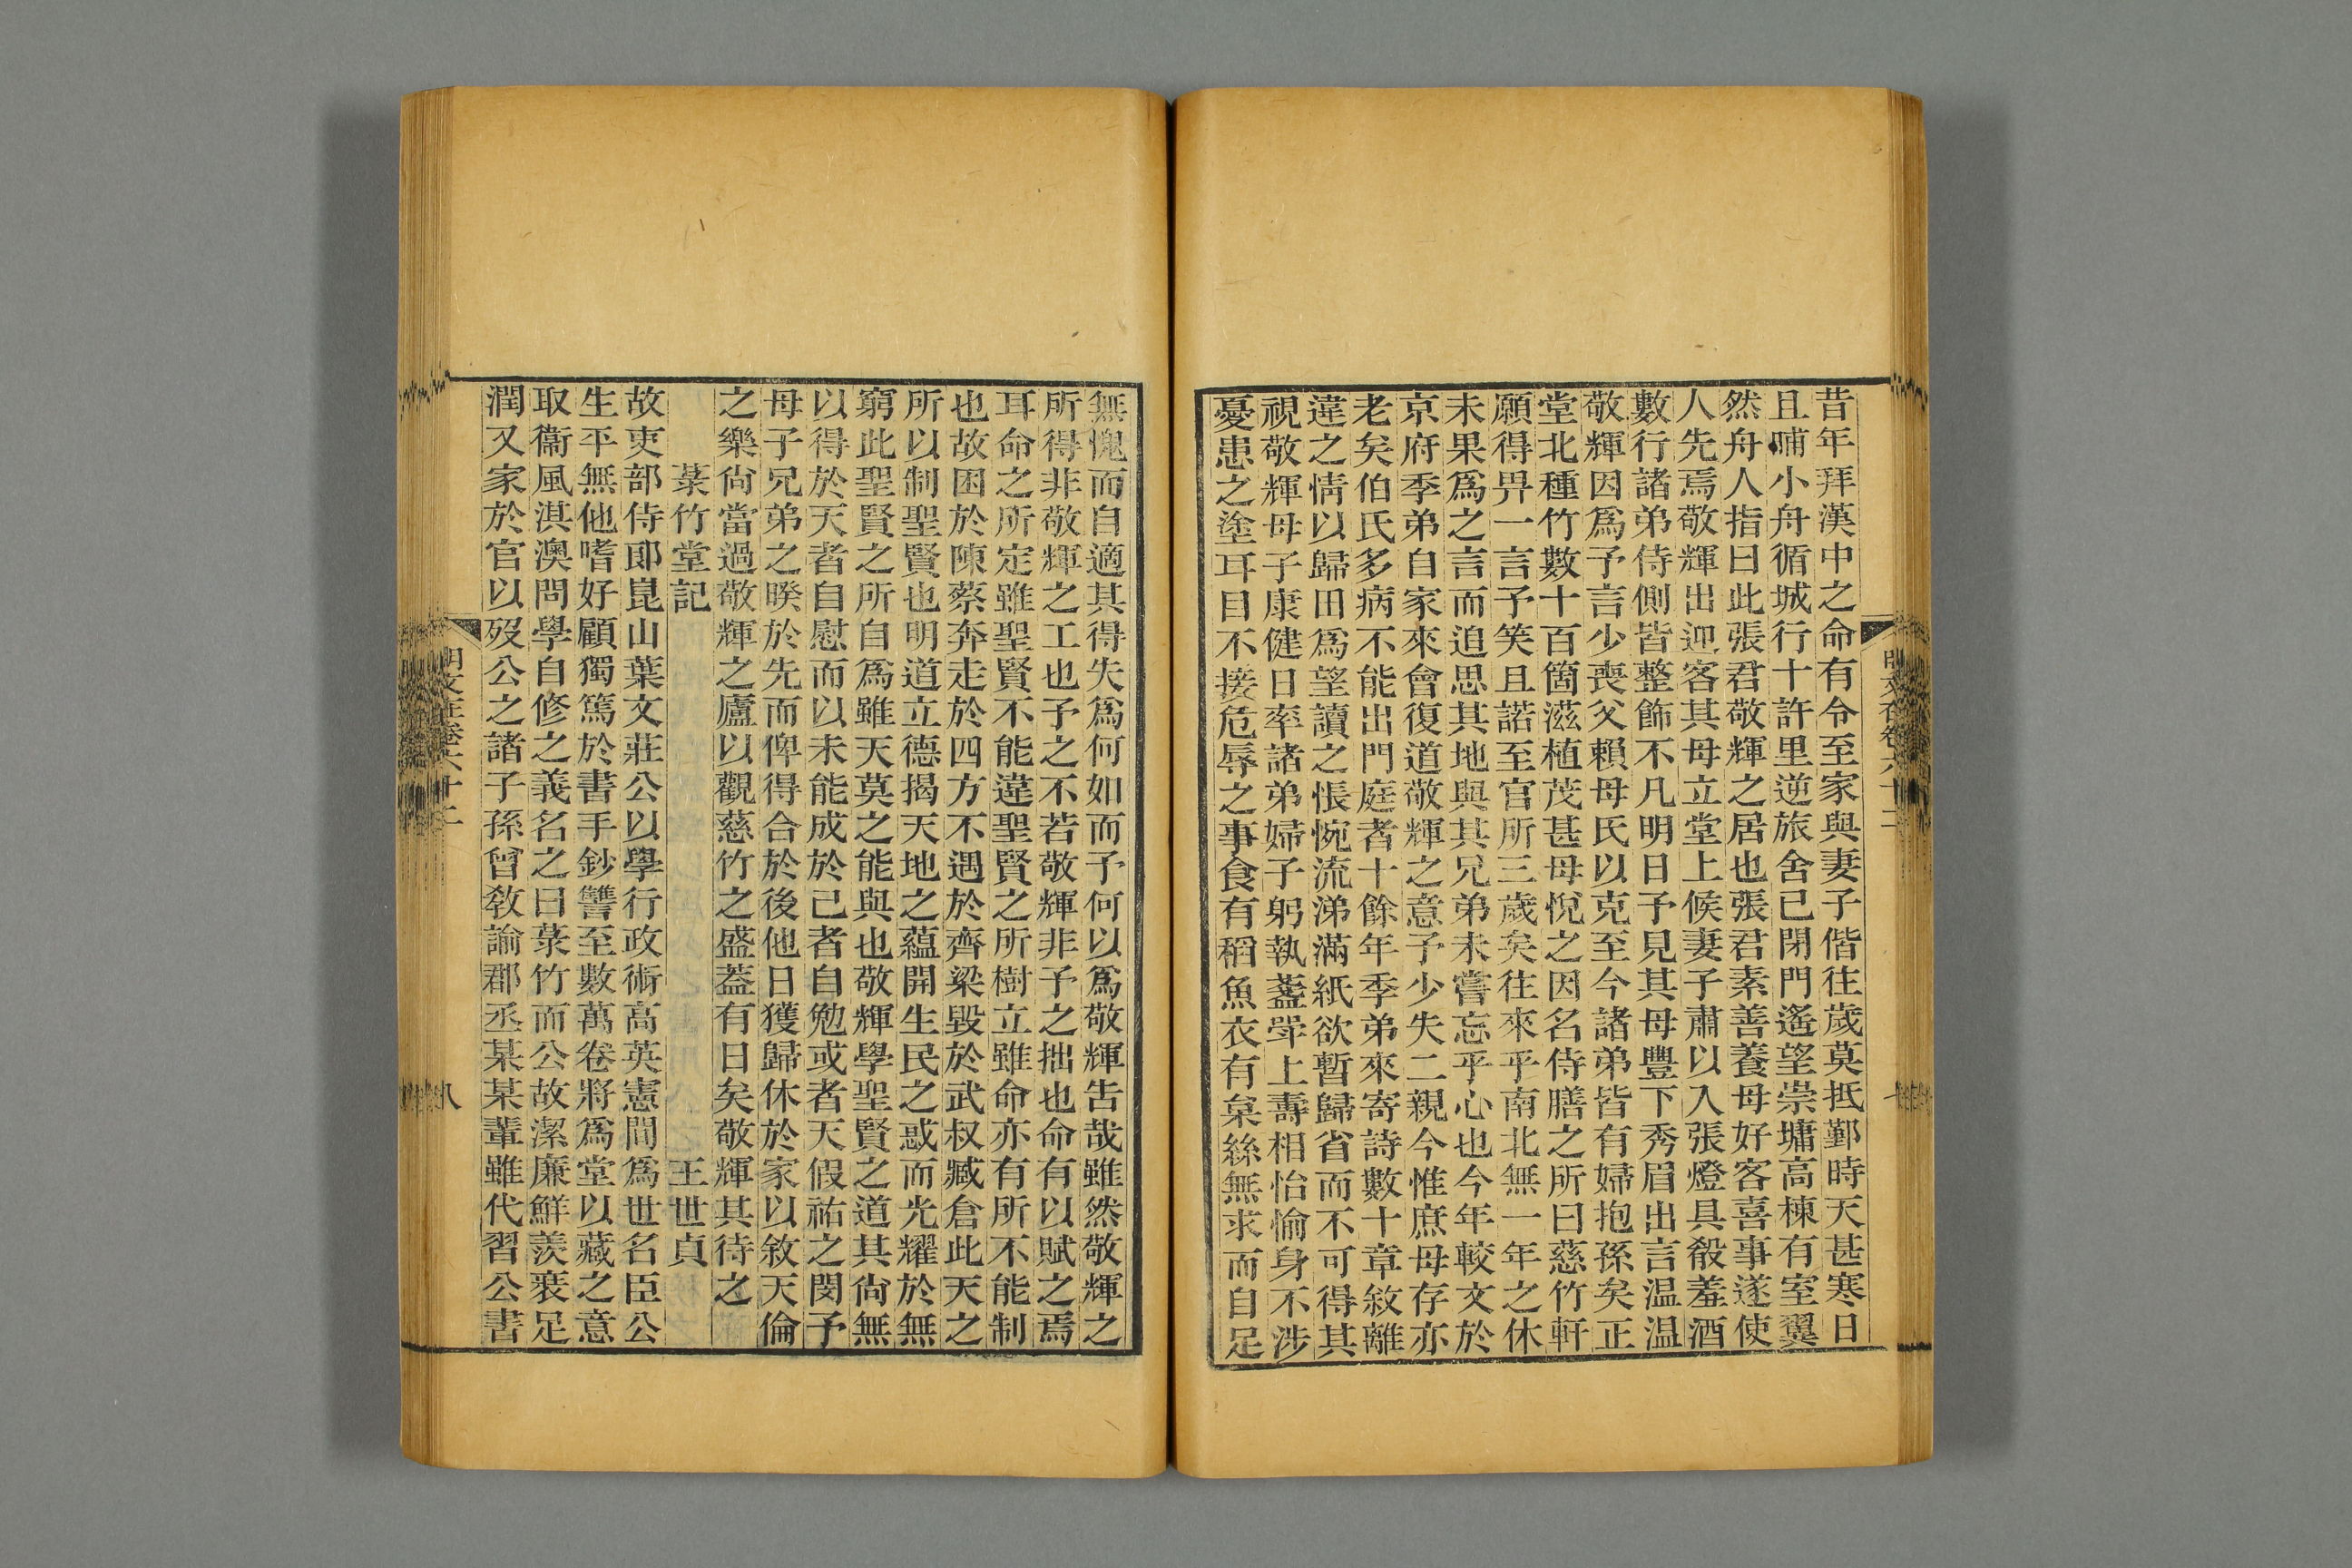 昔年拜漢中之命有令至家與妻子偕往歲莫抵鄞時天甚寒日
且晡小舟循城行十許里逆旅舍已閉門遙望崇墉高棟有室翼
然舟人指曰此張君敬輝之居也張君素善養母好客喜事遂使
人先焉敬輝出迎客其母立堂上候妻子肅以入張燈具殽羞酒
數行諸弟侍側皆整飾不凡明日予見其母豐下秀眉出言温温
敬輝因爲予言少喪父賴母氏以克至今諸弟皆有婦抱孫矣正
堂北種竹數十百箇滋植茂甚母悅之因名侍膳之所曰慈竹軒
願得畀一言予笑且諾至官所三歲矣往來乎南北無一年之休
未果爲之言而追思其地與其兄弟未嘗忘乎心也今年較文於
京府季弟自家來會復道敬輝之意予少失二親今惟庶母存亦
老矣伯氏多病不能出門庭者十餘年季弟來寄詩數十章敘離
違之情以歸田爲望讀之悵惋流涕滿紙欲暫歸省而不可得其
視敬輝母子康健日率諸弟婦子躬執盞斝上壽相怡愉身不涉
憂患之塗耳目不接危辱之事食有稻魚衣有枲絲無求而自足
無愧而自適其得失爲何如而予何以爲敬輝告哉雖然敬輝之
所得非敬輝之工也予之不若敬輝非予之拙也命有以賦之焉
耳命之所定雖聖賢不能違聖賢之所樹立雖命亦有所不能制
也故困於陳蔡奔走於四方不遇於齊梁毀於武叔臧倉此天之
所以制聖賢也明道立德揭天地之蘊開生民之惑而光耀於無
窮此聖賢之所自爲雖天莫之能與也敬輝學聖賢之道其尙無
以得於天者自慰而以未能成於己者自勉或者天假祐之閔予
母子兄弟之暌於先而俾得合於後他日獲歸休於家以敘天倫
之樂尙當過敬輝之廬以觀慈竹之盛蓋有日矣敬輝其待之
菉竹堂記　王世貞
故吏部侍郎崑山葉文莊公以學行政術高英憲間爲世名臣公
生平無他嗜好顧獨篤於書手鈔讐至數萬卷將爲堂以藏之意
取衞風淇澳問學自修之義名之曰菉竹而公故潔廉鮮羨裘足
潤又家於官以歿公之諸子孫曾敎諭郡丞某某輩雖代習公書
明文在卷六十二
八